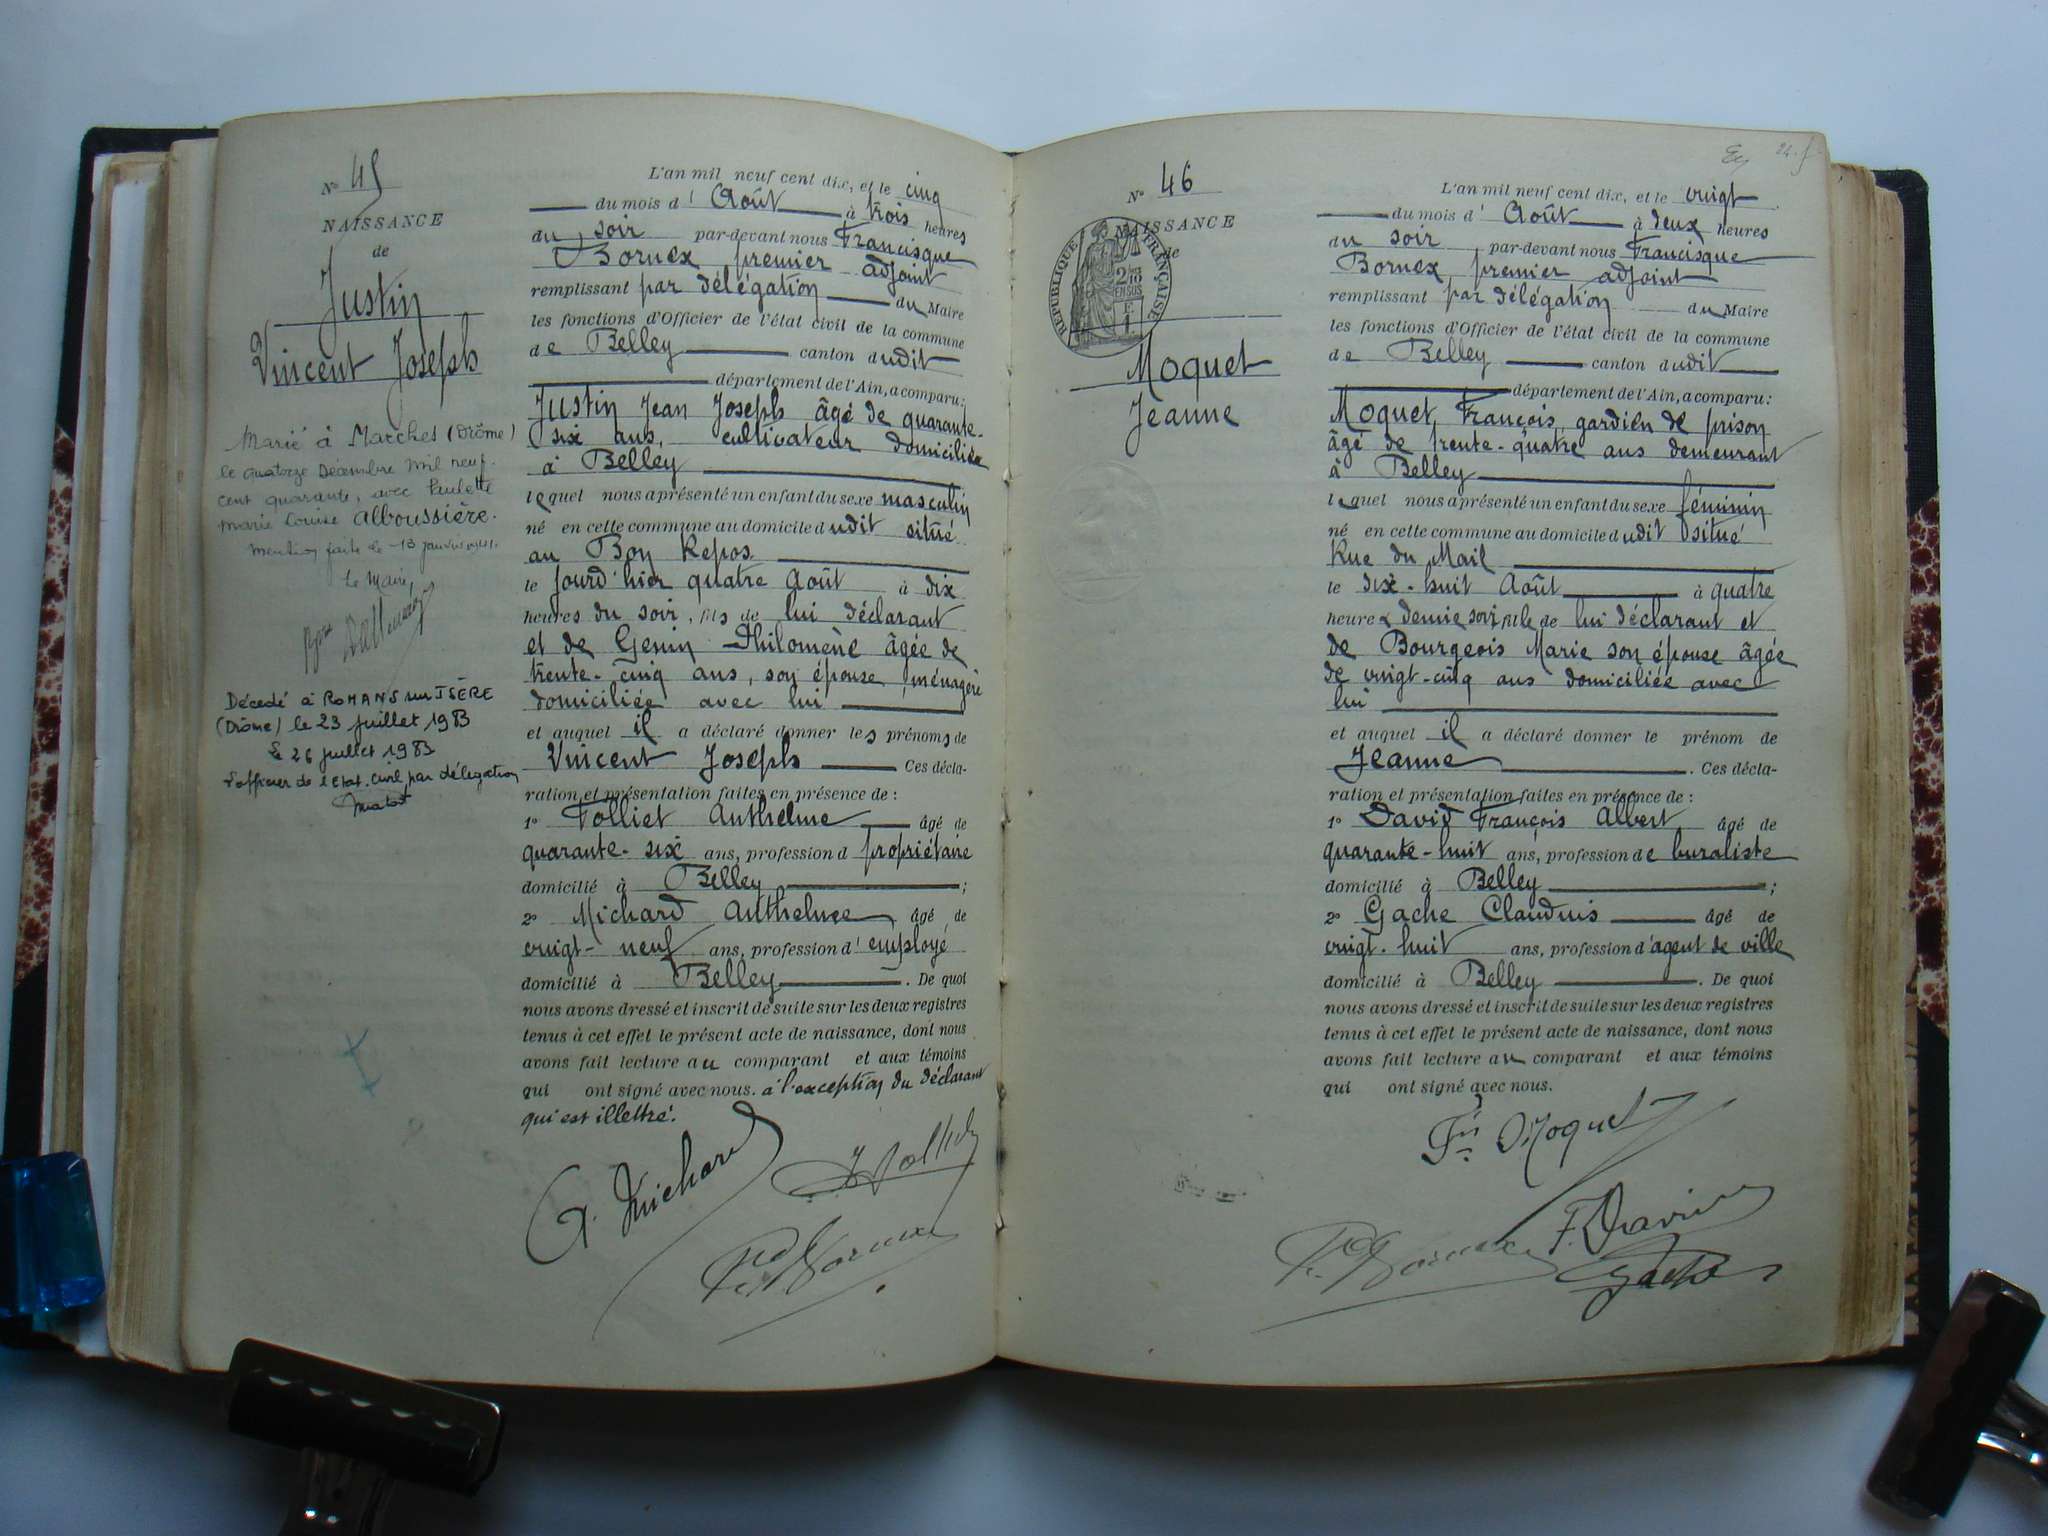 N° 45
NAISSANCE
de
Justin
Vincent Joseph
Marié à Marches (Drôme)
le quatorze Décembre mil neuf
cent quarante, avec Paulette
Marie Louise Alboussière.
Mention faite le 13 janvier 1941.
Le Maire,
Décédé à ROMANS sur ISÈRE
(Drôme) le 23 juillet 1983
Le 26 juillet 1983
l'officier de l'Etat. Civil par délégation
L'an mil neuf cent dix, et le cinq
du mois d'Août à trois heures
du soir par-devant nous Francisque
Bornex premier adjoint
remplissant par délégation du Maire
les fonctions d'Officier de l'état civil de la commune
de Belley canton dudit
département de l'Ain, a comparu:
Justin Jean Joseph âgé de quarante-
six ans, cultivateur domicilié
à Belley
lequel nous a présenté un enfant du sexe masculin
né en cette commune au domicile dudit situé
au Bon Repos
le jourd'hier quatre Août à dix
heures du soir, fils de lui déclarant
et de Genin Philomène âgée de
trente-cinq ans, son épouse, ménagère
domiciliée avec lui
et auquel il a déclaré donner les prénoms de
Vincent Joseph Ces décla-
ration et présentation faites en présence de :
1° Folliet Anthelme âgé de
quarante-six ans, profession d propriétaire
domicilié à Belley ;
2° Michard Anthelme âgé de
vingt-neuf ans, profession d'employé
domicilié à Belley . De quoi
nous avons dressé et inscrit de suite sur les deux registres
tenus à cet effet le présent acte de naissance, dont nous
avons fait lecture au comparant et aux témoins
qui ont signé avec nous. à l'exception du déclarant
qui est illettré.
A. Michard
Fd Bornex
24.
N° 46
NAISSANCE
de
RÉPUBLIQUE FRANÇAISE
2/10
EN SUS
Moquet
Jeanne
L'an mil neuf cent dix, et le vingt
du mois d'Août à deux heures
du soir par-devant nous Francisque
Bornex premier adjoint
remplissant par délégation du Maire
les fonctions d'Officier de l'état civil de la commune
de Belley canton dudit
département de l'Ain, a comparu:
Moquet François, gardien de prison
âgé de trente-quatre ans demeurant
à Belley
lequel nous a présenté un enfant du sexe féminin
né en cette commune au domicile dudit situé
Rue du Mail
le dix-huit Août à quatre
heures demie soir fille de lui déclarant et
de Bourgeois Marie son épouse âgée
de vingt-cinq ans domiciliée avec
lui
et auquel il a déclaré donner le prénom de
Jeanne . Ces décla-
ration et présentation faites en présence de :
1° David François Albert âgé de
quarante-huit ans, profession de buraliste
domicilié à Belley ;
2° Gache Claudius âgé de
vingt-huit ans, profession d'agent de ville
domicilié à Belley . De quoi
nous avons dressé et inscrit de suite sur les deux registres
tenus à cet effet le présent acte de naissance, dont nous
avons fait lecture au comparant et aux témoins
qui ont signé avec nous.
Fs Moquet
F. David
Fd Bornex
Gache